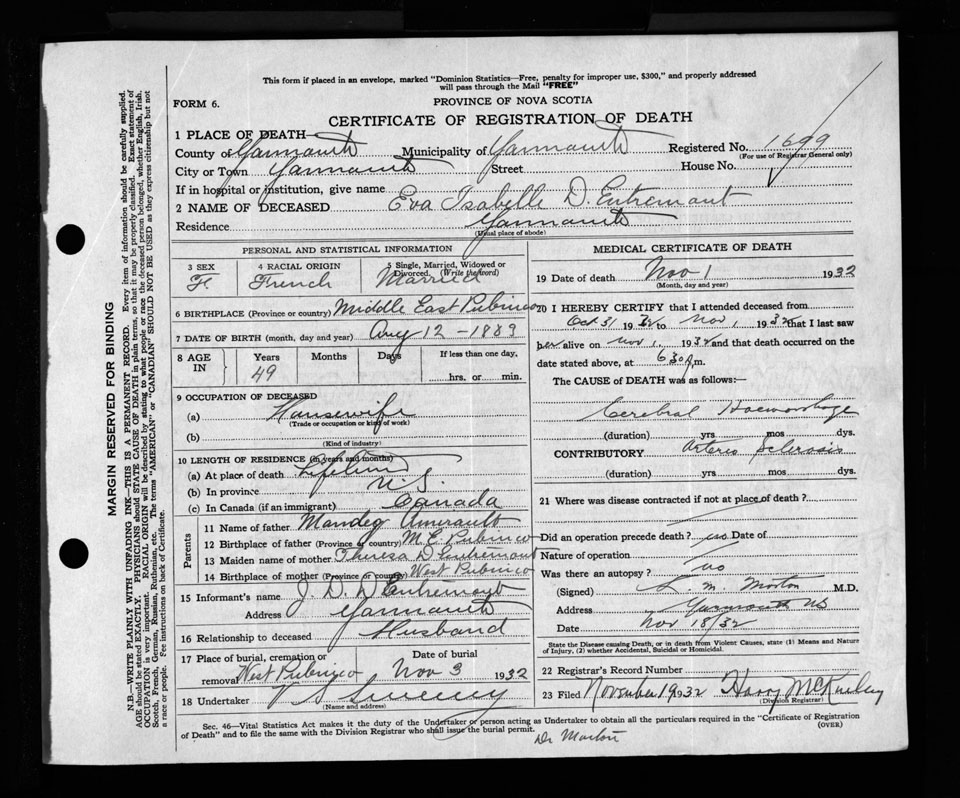 This form if placed in an envelope, marked "Dominion Statistics—Free, penalty for improper use, $300," and properly addressed
will pass through the Mail "FREE"
FORM 6.
PROVINCE OF NOVA SCOTIA
CERTIFICATE OF REGISTRATION OF DEATH
1 PLACE OF DEATH
County of Yarmouth Municipality of Yarmouth Registered No. 1699
(For use of Registrar General only)
City or Town Yarmouth Street House No.
If in hospital or institution, give name
2 NAME OF DECEASED Eva Isabelle D. Entremont
Residence Yarmouth
(Usual place of abode)
PERSONAL AND STATISTICAL INFORMATION
3 SEX 4 RACIAL ORIGIN 5 Single, Married, Widowed or
Divorced. (Write the word)
F French Married
6 BIRTHPLACE (Province or country) Middle East Pubnico
7 DATE OF BIRTH (month, day and year) Aug 12 - 1889
8 AGE IN Years Months Days If less than one day,
49 hrs. or min.
9 OCCUPATION OF DECEASED
(a) Housewife
(Trade or occupation or kind of work)
(b)
(Kind of industry)
10 LENGTH OF RESIDENCE (in years and months)
(a) At place of death Lifetime
(b) In province N.S.
(c) In Canada (if an immigrant) Canada
Parents
11 Name of father Mandeg Amirault
12 Birthplace of father (Province or country) M. E. Pubnico
13 Maiden name of mother Theresa D Entremont
14 Birthplace of mother (Province or country) West Pubnico
15 Informant's name J. D. D Entremont
Address Yarmouth
16 Relationship to deceased Husband
17 Place of burial, cremation or Date of burial
removal West Pubnico Nov 3 1932
18 Undertaker V S Sweeny
(Name and address)
MEDICAL CERTIFICATE OF DEATH
19 Date of death Nov 1 1932
(Month, day and year)
20 I HEREBY CERTIFY that I attended deceased from
Oct 31 1932 to Nov 1 1932 that I last saw
her alive on Nov 1 1932 and that death occurred on the
date stated above, at 6 30 p.m.
The CAUSE of DEATH was as follows:
Cerebral Haemorrhage
(duration) yrs mos dys.
CONTRIBUTORY Arterio Sclerosis
(duration) yrs mos dys.
21 Where was disease contracted if not at place of death ?
Did an operation precede death? no Date of
Nature of operation
Was there an autopsy ? no
(Signed) L. M. Morton M.D.
Address Yarmouth NS
Date Nov 18/32
State the Disease causing Death, or in death from Violent Causes, state (1) Means and Nature
of Injury, (2) whether Accidental, Suicidal or Homicidal.
22 Registrar's Record Number
23 Filed November 19 1932 Harry McKinley
(Division Registrar)
Sec. 46—Vital Statistics Act makes it the duty of the Undertaker or person acting as Undertaker to obtain all the particulars required in the "Certificate of Registration
of Death" and to file the same with the Division Registrar who shall issue the burial permit.
(OVER)
Dr Morton
MARGIN RESERVED FOR BINDING
N.B.—WRITE PLAINLY WITH UNFADING INK—THIS IS A PERMANENT RECORD. Every item of information should be carefully supplied.
AGE should be stated EXACTLY. PHYSICIANS should STATE CAUSE OF DEATH in plain terms, so that it may be properly classified. Exact statement of
OCCUPATION is very important. RACIAL ORIGIN will be described by stating to what people or race the deceased person belonged, whether English, Irish,
Scotch, French, German, Russian, Ruthenian, etc. The terms "AMERICAN" or "CANADIAN" SHOULD NOT BE USED as they express citizenship but not
a race or people. Fee instructions on back of Certificate.